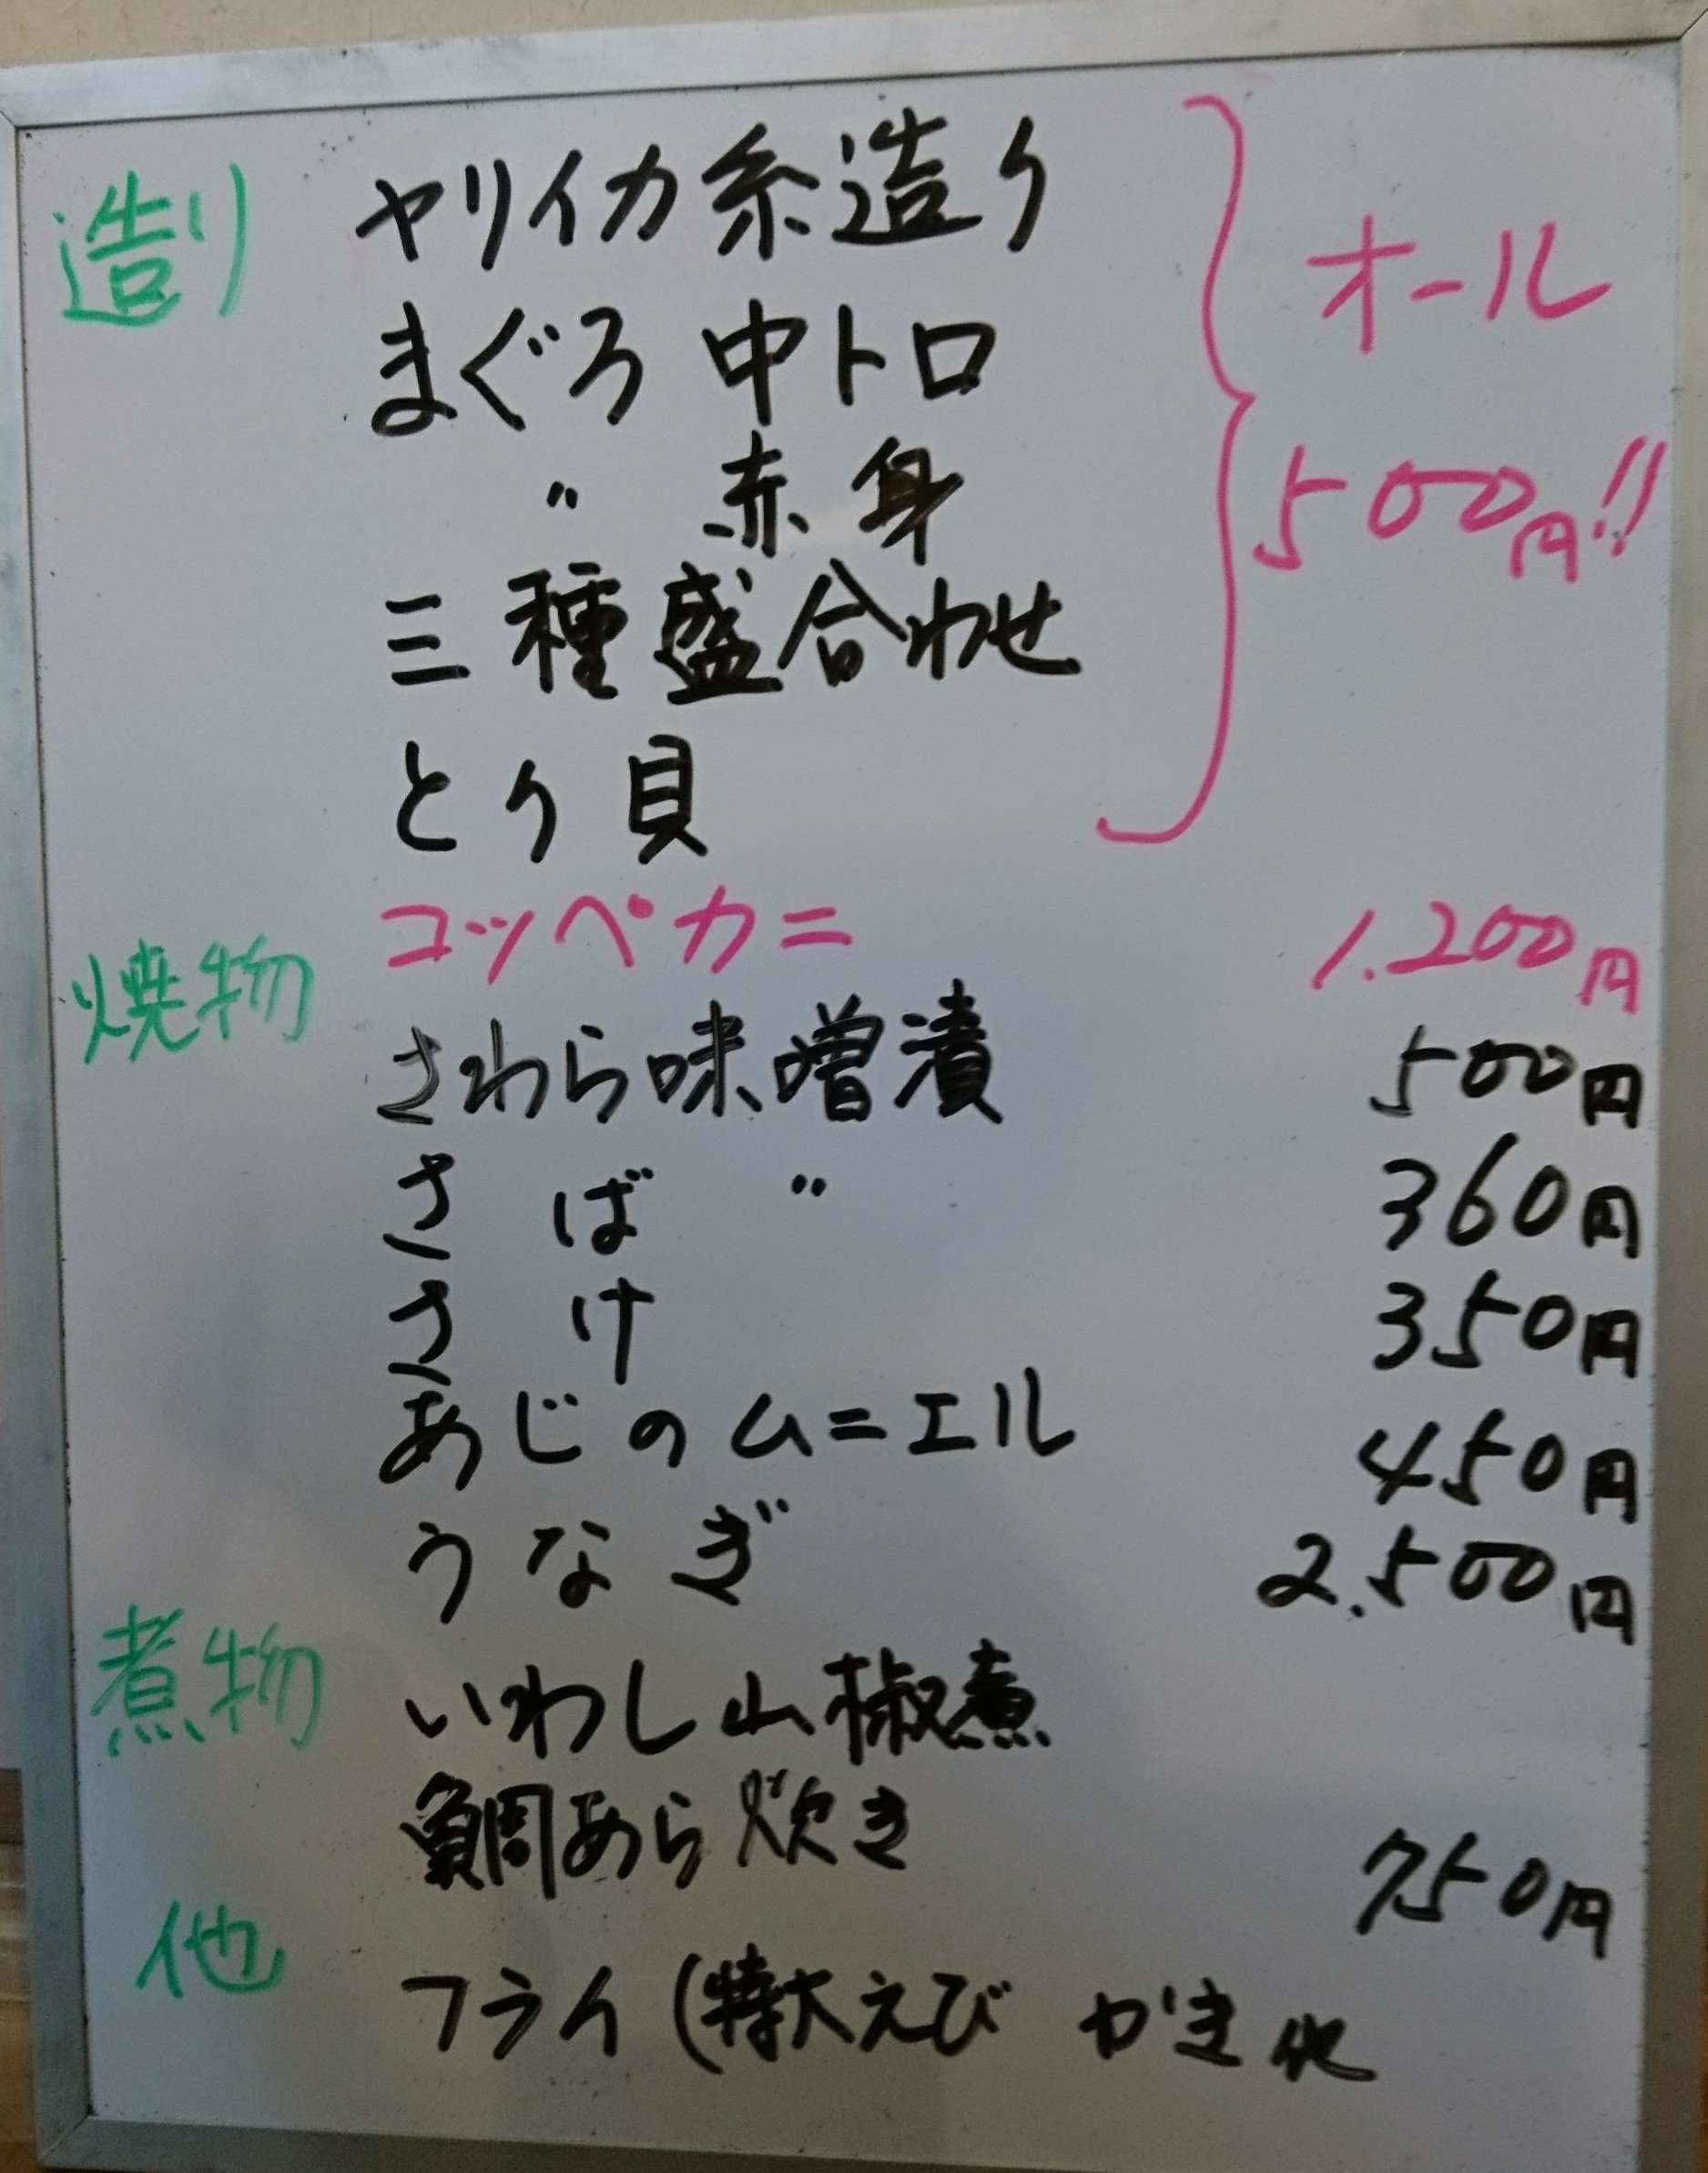 造り ヤリイカ糸造り
まぐろ 中トロ
〃 赤身
三種盛合わせ
とり貝
オール
500円!!
焼物 コッペカニ 1.200円
さわら味噌漬 500円
さば 〃 360円
さけ 350円
あじのムニエル 450円
うなぎ 2.500円
煮物 いわし山椒煮
鯛あら炊き 750円
他 フライ(特大えび かき 他